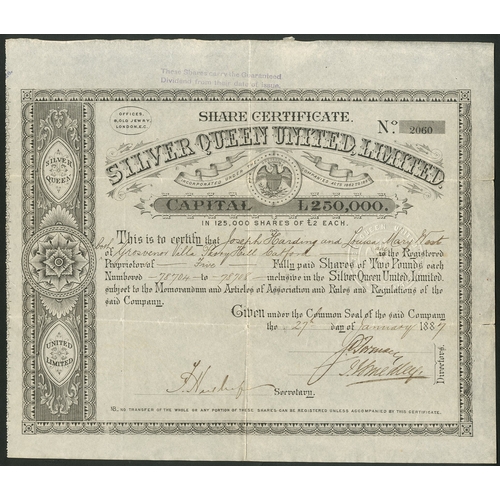 These Shares carry the Guaranteed
Dividend from their date of issue.
OFFICES,
OLD JEWRY,
LONDON, E.C.
SHARE CERTIFICATE.
No. 2060
SILVER QUEEN UNITED, LIMITED.
INCORPORATED UNDER COMPANIES ACTS
CAPITAL £250,000.
IN 125,000 SHARES OF £2 EACH.
SILVER
QUEEN
This is to certify that Joseph Harding and Louisa Mary
both of Grosvenor Villa Hill Catford is the Registered
Proprietor of Five Fully paid Shares of Two Pounds each
Numbered 78704 to 78708 inclusive in the Silver Queen United, Limited.
subject to the Memorandum and Articles of Association and Rules and Regulations of the
said Company.
Given under the Common Seal of the said Company
the 27th day of January 1889
UNITED
LIMITED
Directors.
Secretary.
N.B. NO TRANSFER OF THE WHOLE OR ANY PORTION OF THESE SHARES CAN BE REGISTERED UNLESS ACCOMPANIED BY THIS CERTIFICATE.